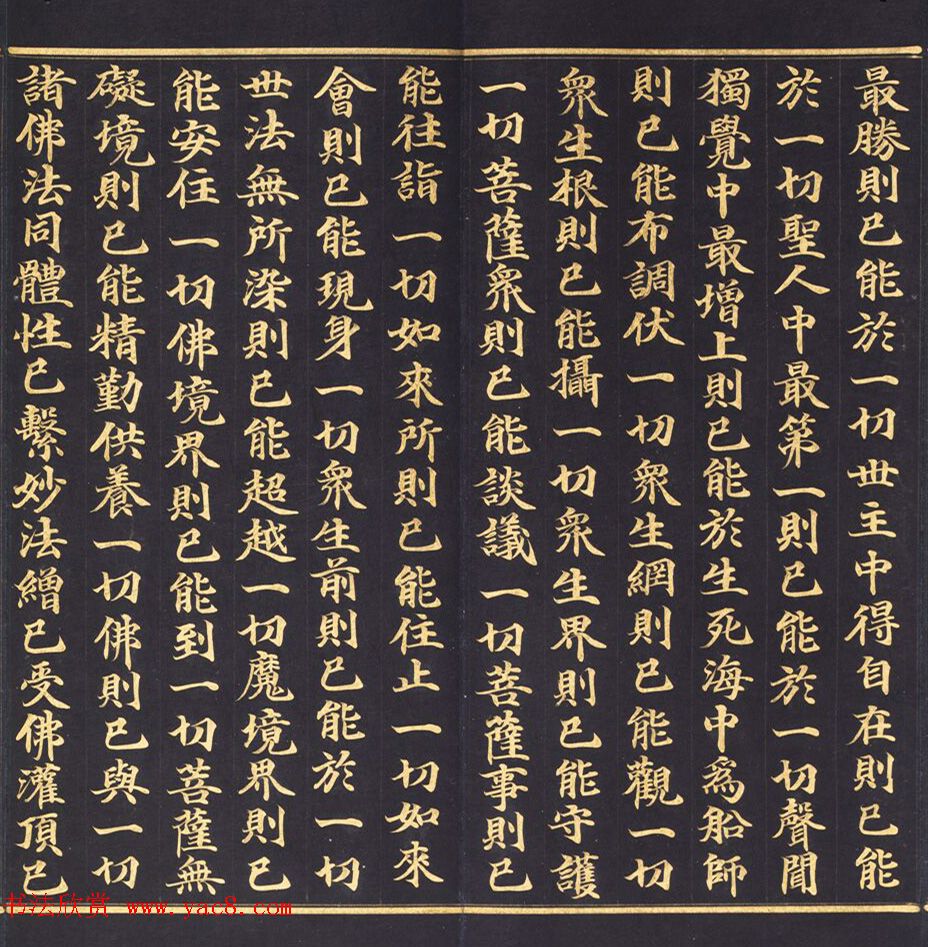 最勝則已能於一切世主中得自在則已能
於一切聖人中最第一則已能於一切聲聞
獨覺中最增上則已能於生死海中為船師
則已能布調伏一切衆生網則已能觀一切
衆生根則已能攝一切衆生界則已能守護
一切菩薩衆則已能談議一切菩薩事則已
能往詣一切如來所則已能住止一切如來
會則已能現身一切衆生前則已能於一切
世法無所染則已能超越一切魔境界則已
能安住一切佛境界則已能到一切菩薩無
礙境則已能精勤供養一切佛則已與一切
諸佛法同體性已繫妙法繒已受佛灌頂已
书法欣赏 www.yac8.com